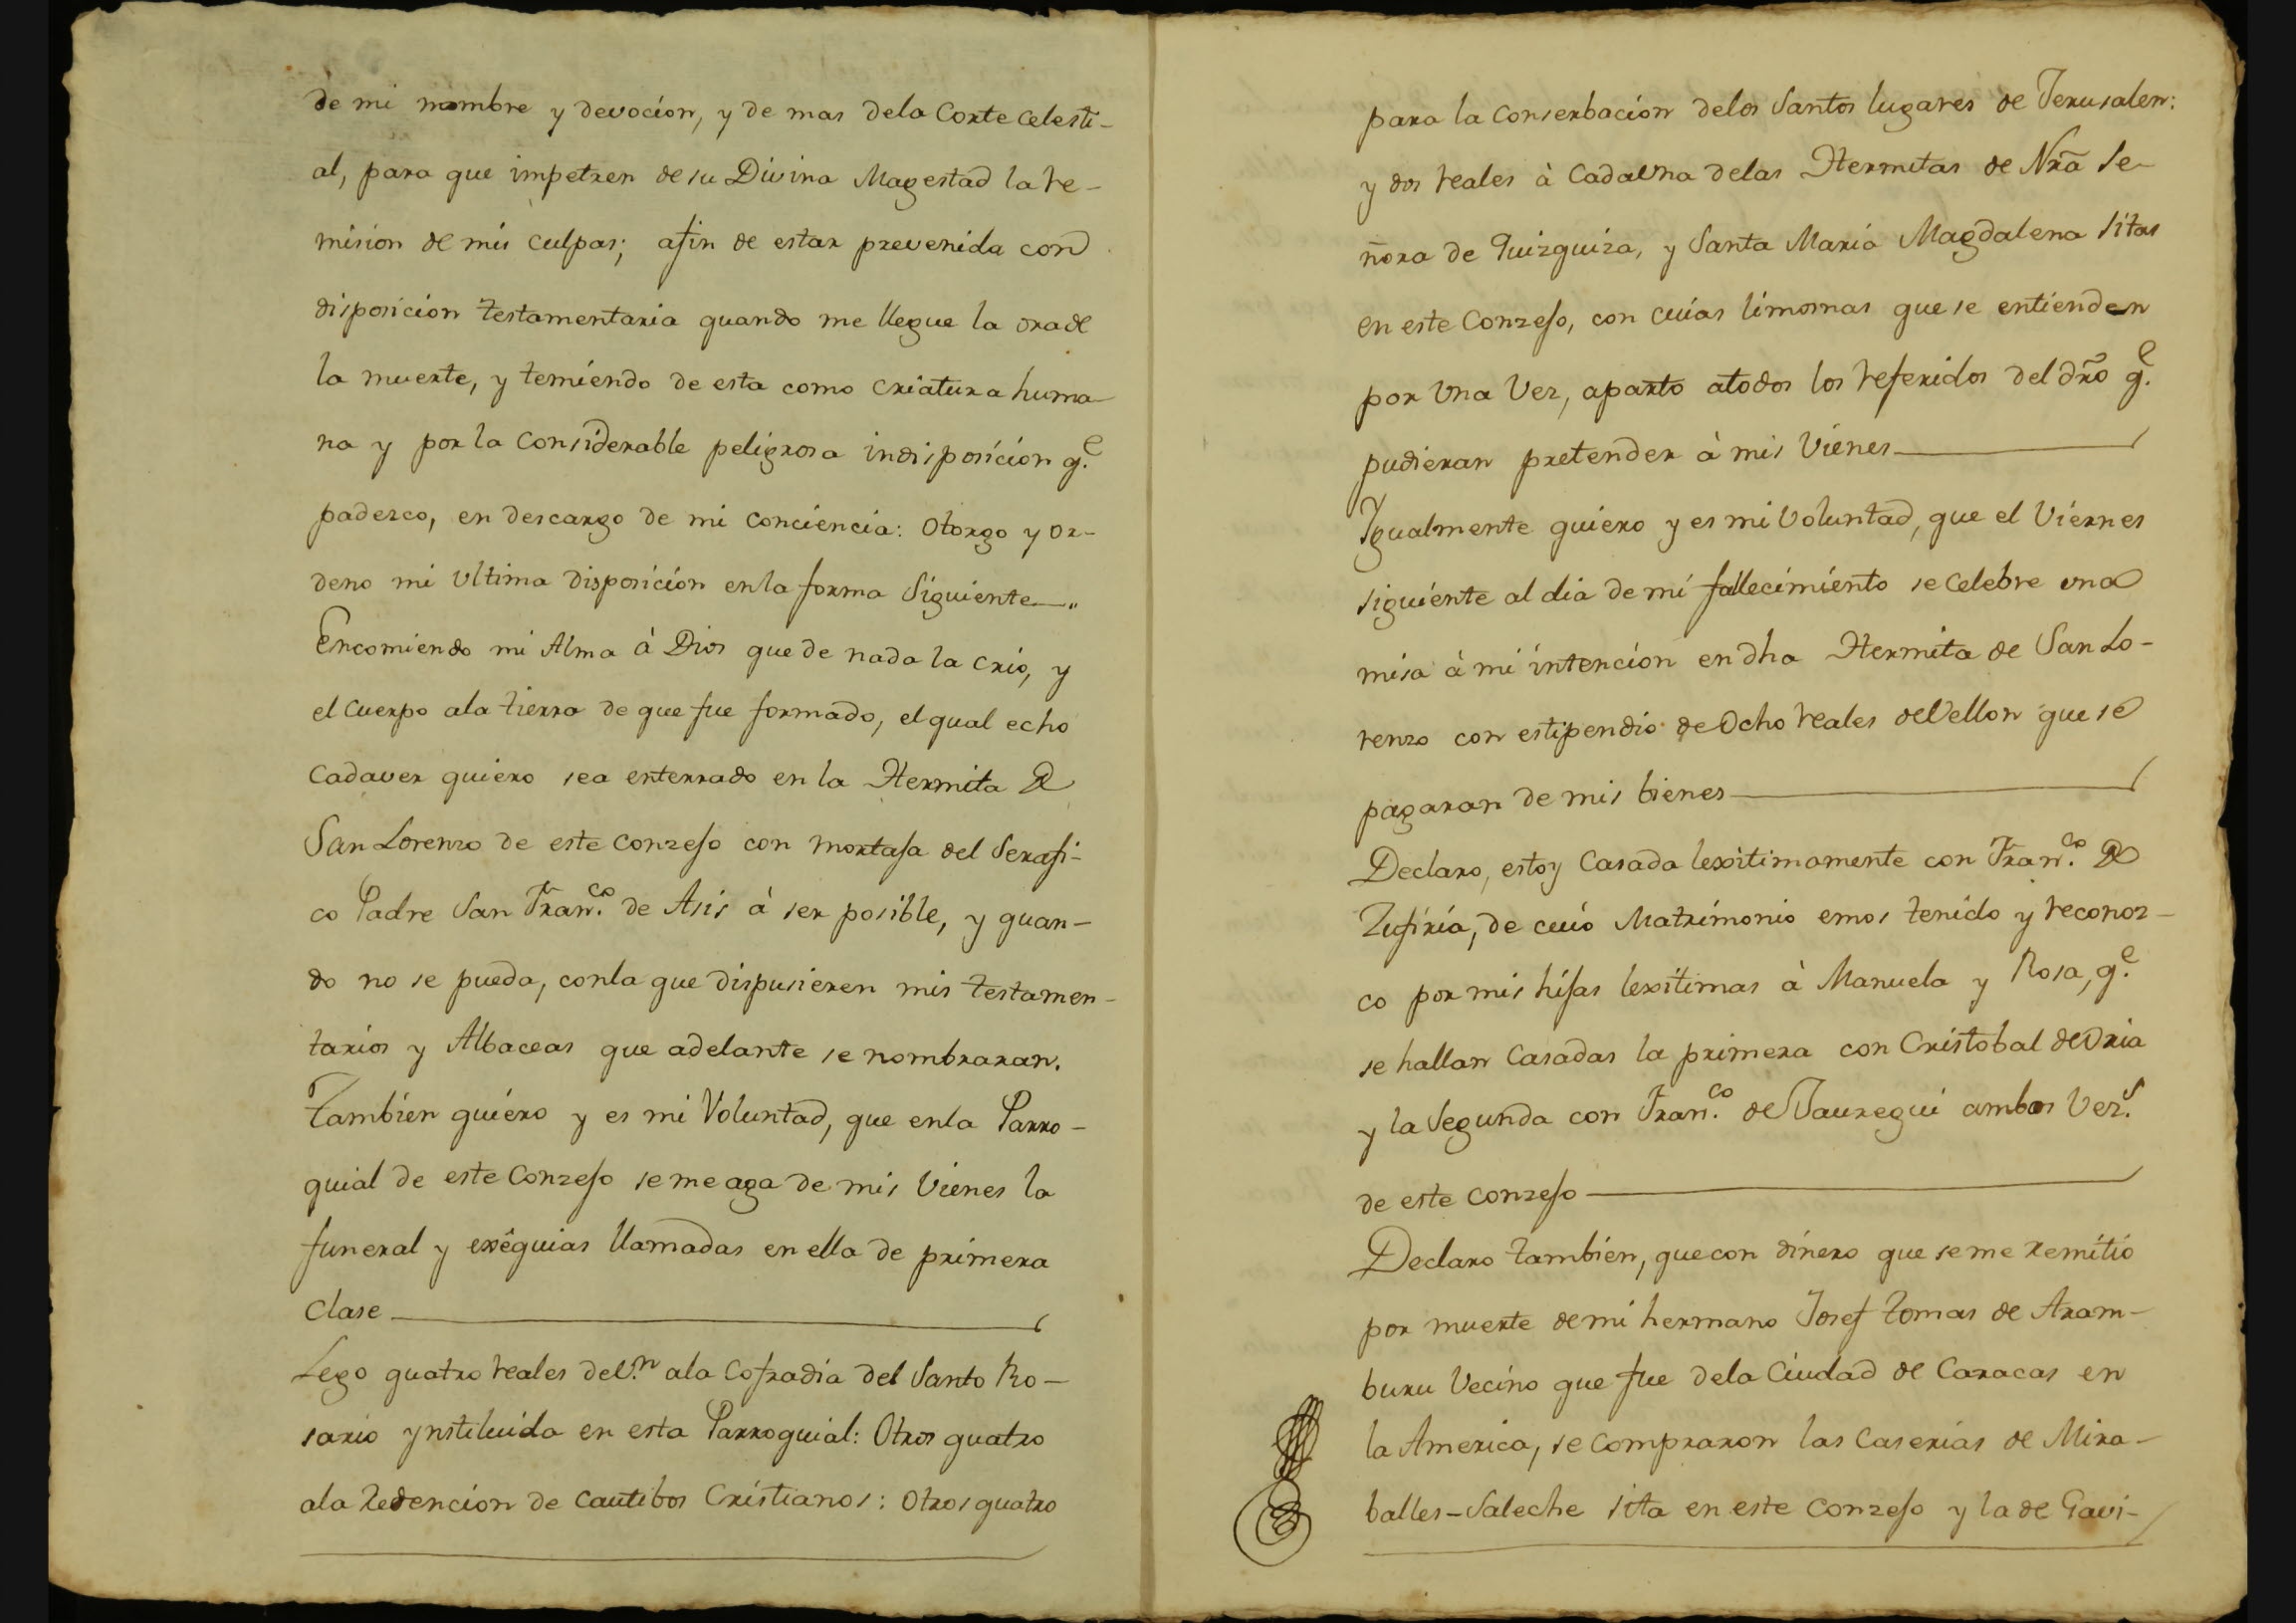 de mi nombre y devocion, y de mas dela Corte Celesti-
al, para que impetren de su Divina Magestad la re-
mision de mis culpas; afin de estar prevenida con
disposicion testamentaria quando me llegue la orade
la muerte, y temiendo de esta como criatura huma-
na y por la considerable peligrosa indisposicion q.e
padezco, en descargo de mi conciencia: Otorgo y or-
deno mi ultima disposicion enla forma Siguiente
Encomiendo mi Alma à Dios que de nada la crio, y
el cuerpo ala tierra de que fue formado, el qual echo
Cadaver quiero sea enterrado en la Hermita de
San Lorenzo de este conzejo con mortaja del Serafi-
co Padre San Fran.co de Asis à ser posible, y quan-
do no se pueda, conla que dispusieren mis testamen-
tarios y Albaceas que adelante se nombraran.
Tambien quiero y es mi Voluntad, que enla Parro-
quial de este Conzejo se me aga de mis Vienes la
funeral y exêquias llamadas en ella de primera
Clase
Lego quatro reales deV.n ala Cofradia del Santo Ro-
sario ynstituida en esta Parroquial: Otros quatro
ala Redencion de Cautibos Cristianos: Otros quatro
para la Conserbacion delos Santos lugares de Jerusalen:
y dos reales à Cadauna delas Hermitas de Nrã Se-
ñora de Quizquiza, y Santa Maria Magdalena sitas
en este Conzejo, con cuias limosnas que se entienden
por Una Vez, aparto atodos los referidos del drõ q.e
pudieran pretender à mis Vienes
Ygualmente quiero y es mi Voluntad, que el Viernes
siguiente al dia de mi fallecimiento se celebre una
misa à mi intencion en dha Hermita de San Lo-
renzo con estipendio de Ocho reales deVellon que se
pagaran de mis bienes
Declaro, estoy Casada lexitimamente con Fran.co de
Zufiria, de cuio Matrimonio emos tenido y reconoz-
co por mis hijas lexitimas à Manuela y Rosa, q.e
se hallan Casadas la primera con Cristobal deOria
y la Segunda con Fran.co de Jauregui ambos Vez.s
de este conzejo
Declaro tambien, que con dinero que se me remitio
por muerte demi hermano Josef Tomas de Aram-
buru Vecino que fue dela Ciudad de Caracas en
la America, se compraron las Caserias de Mira-
balles-Saleche sita en este conzejo y la de Gavi-